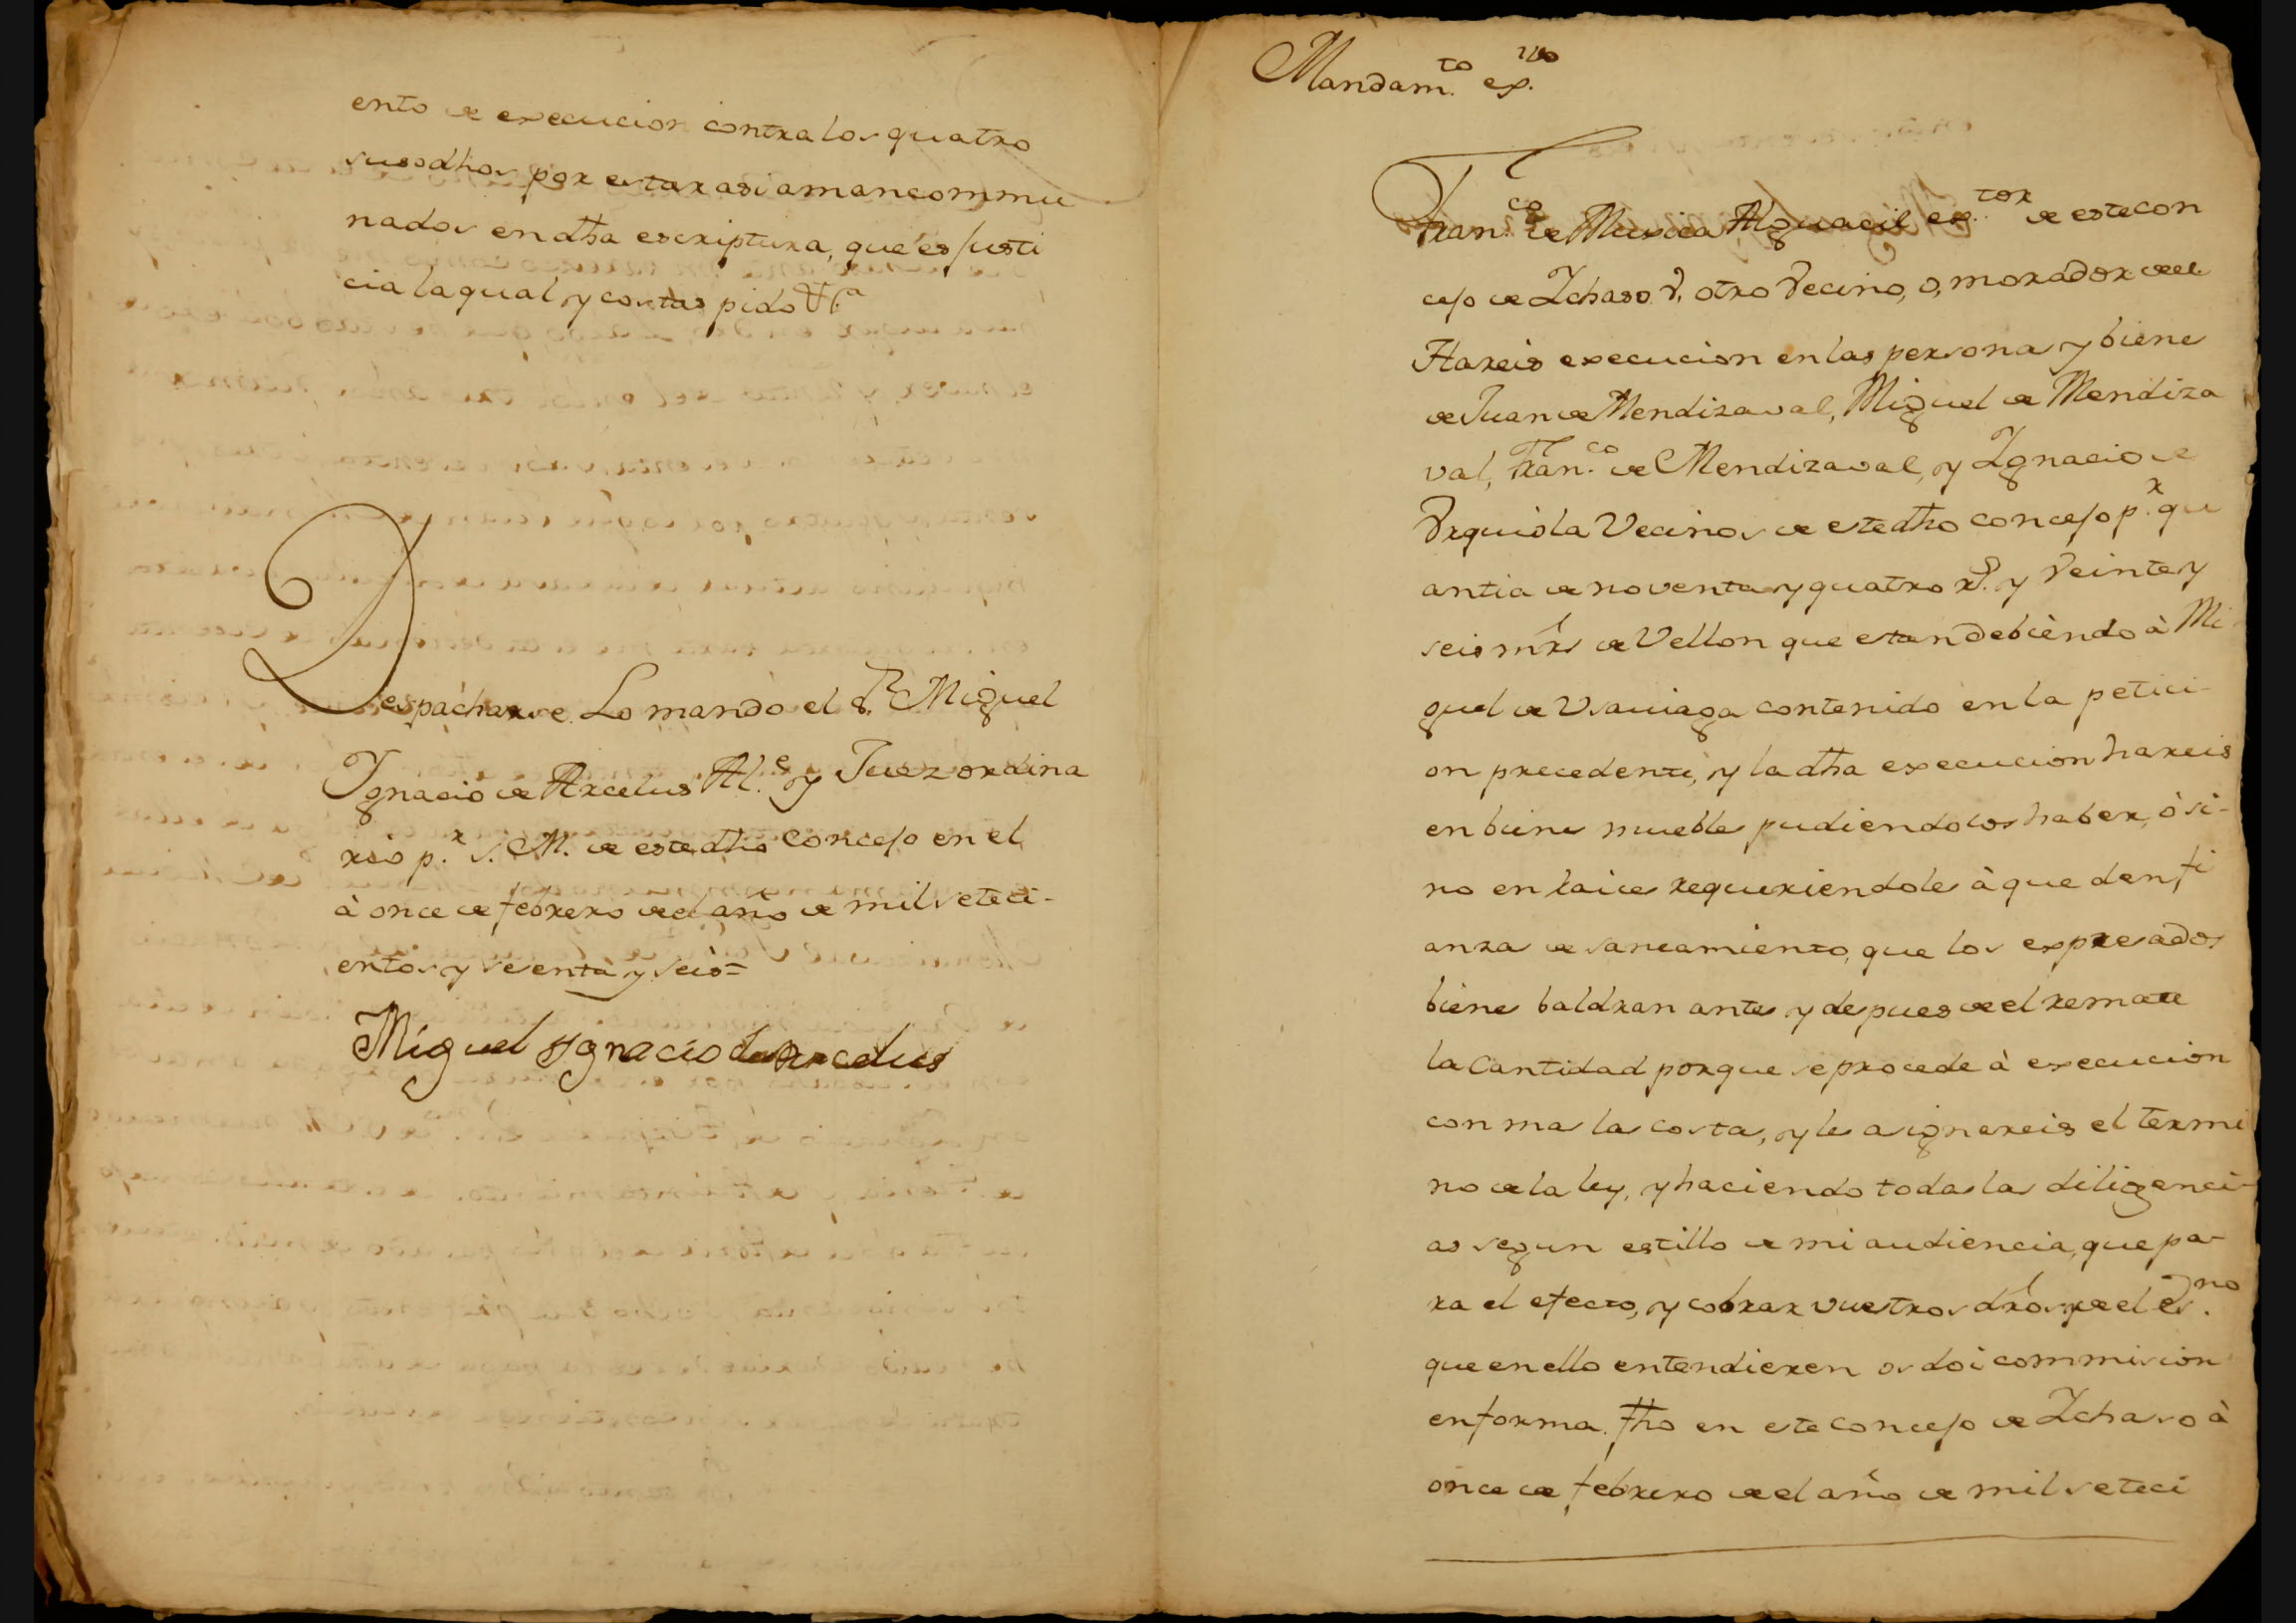 ento de execucion contra los quatro
susodhos por estar asi amancommu
nados en dha escriptura, que es justi
cia la qual, y costas pido Vt.ª
Despacharse. Lo mandó el S.r Miguel
Ygnacio de Arcelus Al.e y Juez ordina
rio p.r S. M. de este dho Concejo en el
à once de febrero de el año de mil seteci-
entos y sesenta y seis=
Miguel Ygnacio de Arcelus
Mandam.to ex.ivo
Fran.co de Muxica Alguacil ex.tor de este con
cejo de Ichaso ú, otro Vecino, o, morador de el
Hareis execucion en las personas y bienes
de Juan de Mendizaval, Miguel de Mendiza
val, Fran.co de Mendizaval, y Ignacio de
Vrquiola Vecinos de este dho concejo p.r qu
antia de noventa y quatro r.s y Veinte y
seis mrs de Vellon que estan debiendo à Mi
guel de Vsauiaga contenido en la petici-
on precedente, y la dha execucion hareis
en bienes muebles pudiendolos haber, ó si-
no en raices requeriendoles à que den fi
anza de saneamiento, que los expresados
bienes baldran antes y despues de el remate
la Cantidad porque se procede à execucion
con mas las costas, y les asignareis el termi
no de la ley, y haciendo todas las diligenci-
as segun estillo de mi audiencia, que pa-
ra el efecto, y cobrar vuestros dros y de el es.no
que en ello entendieren os doi commision
en forma. fho en este concejo de Ichaso à
once de febrero de el año de mil seteci